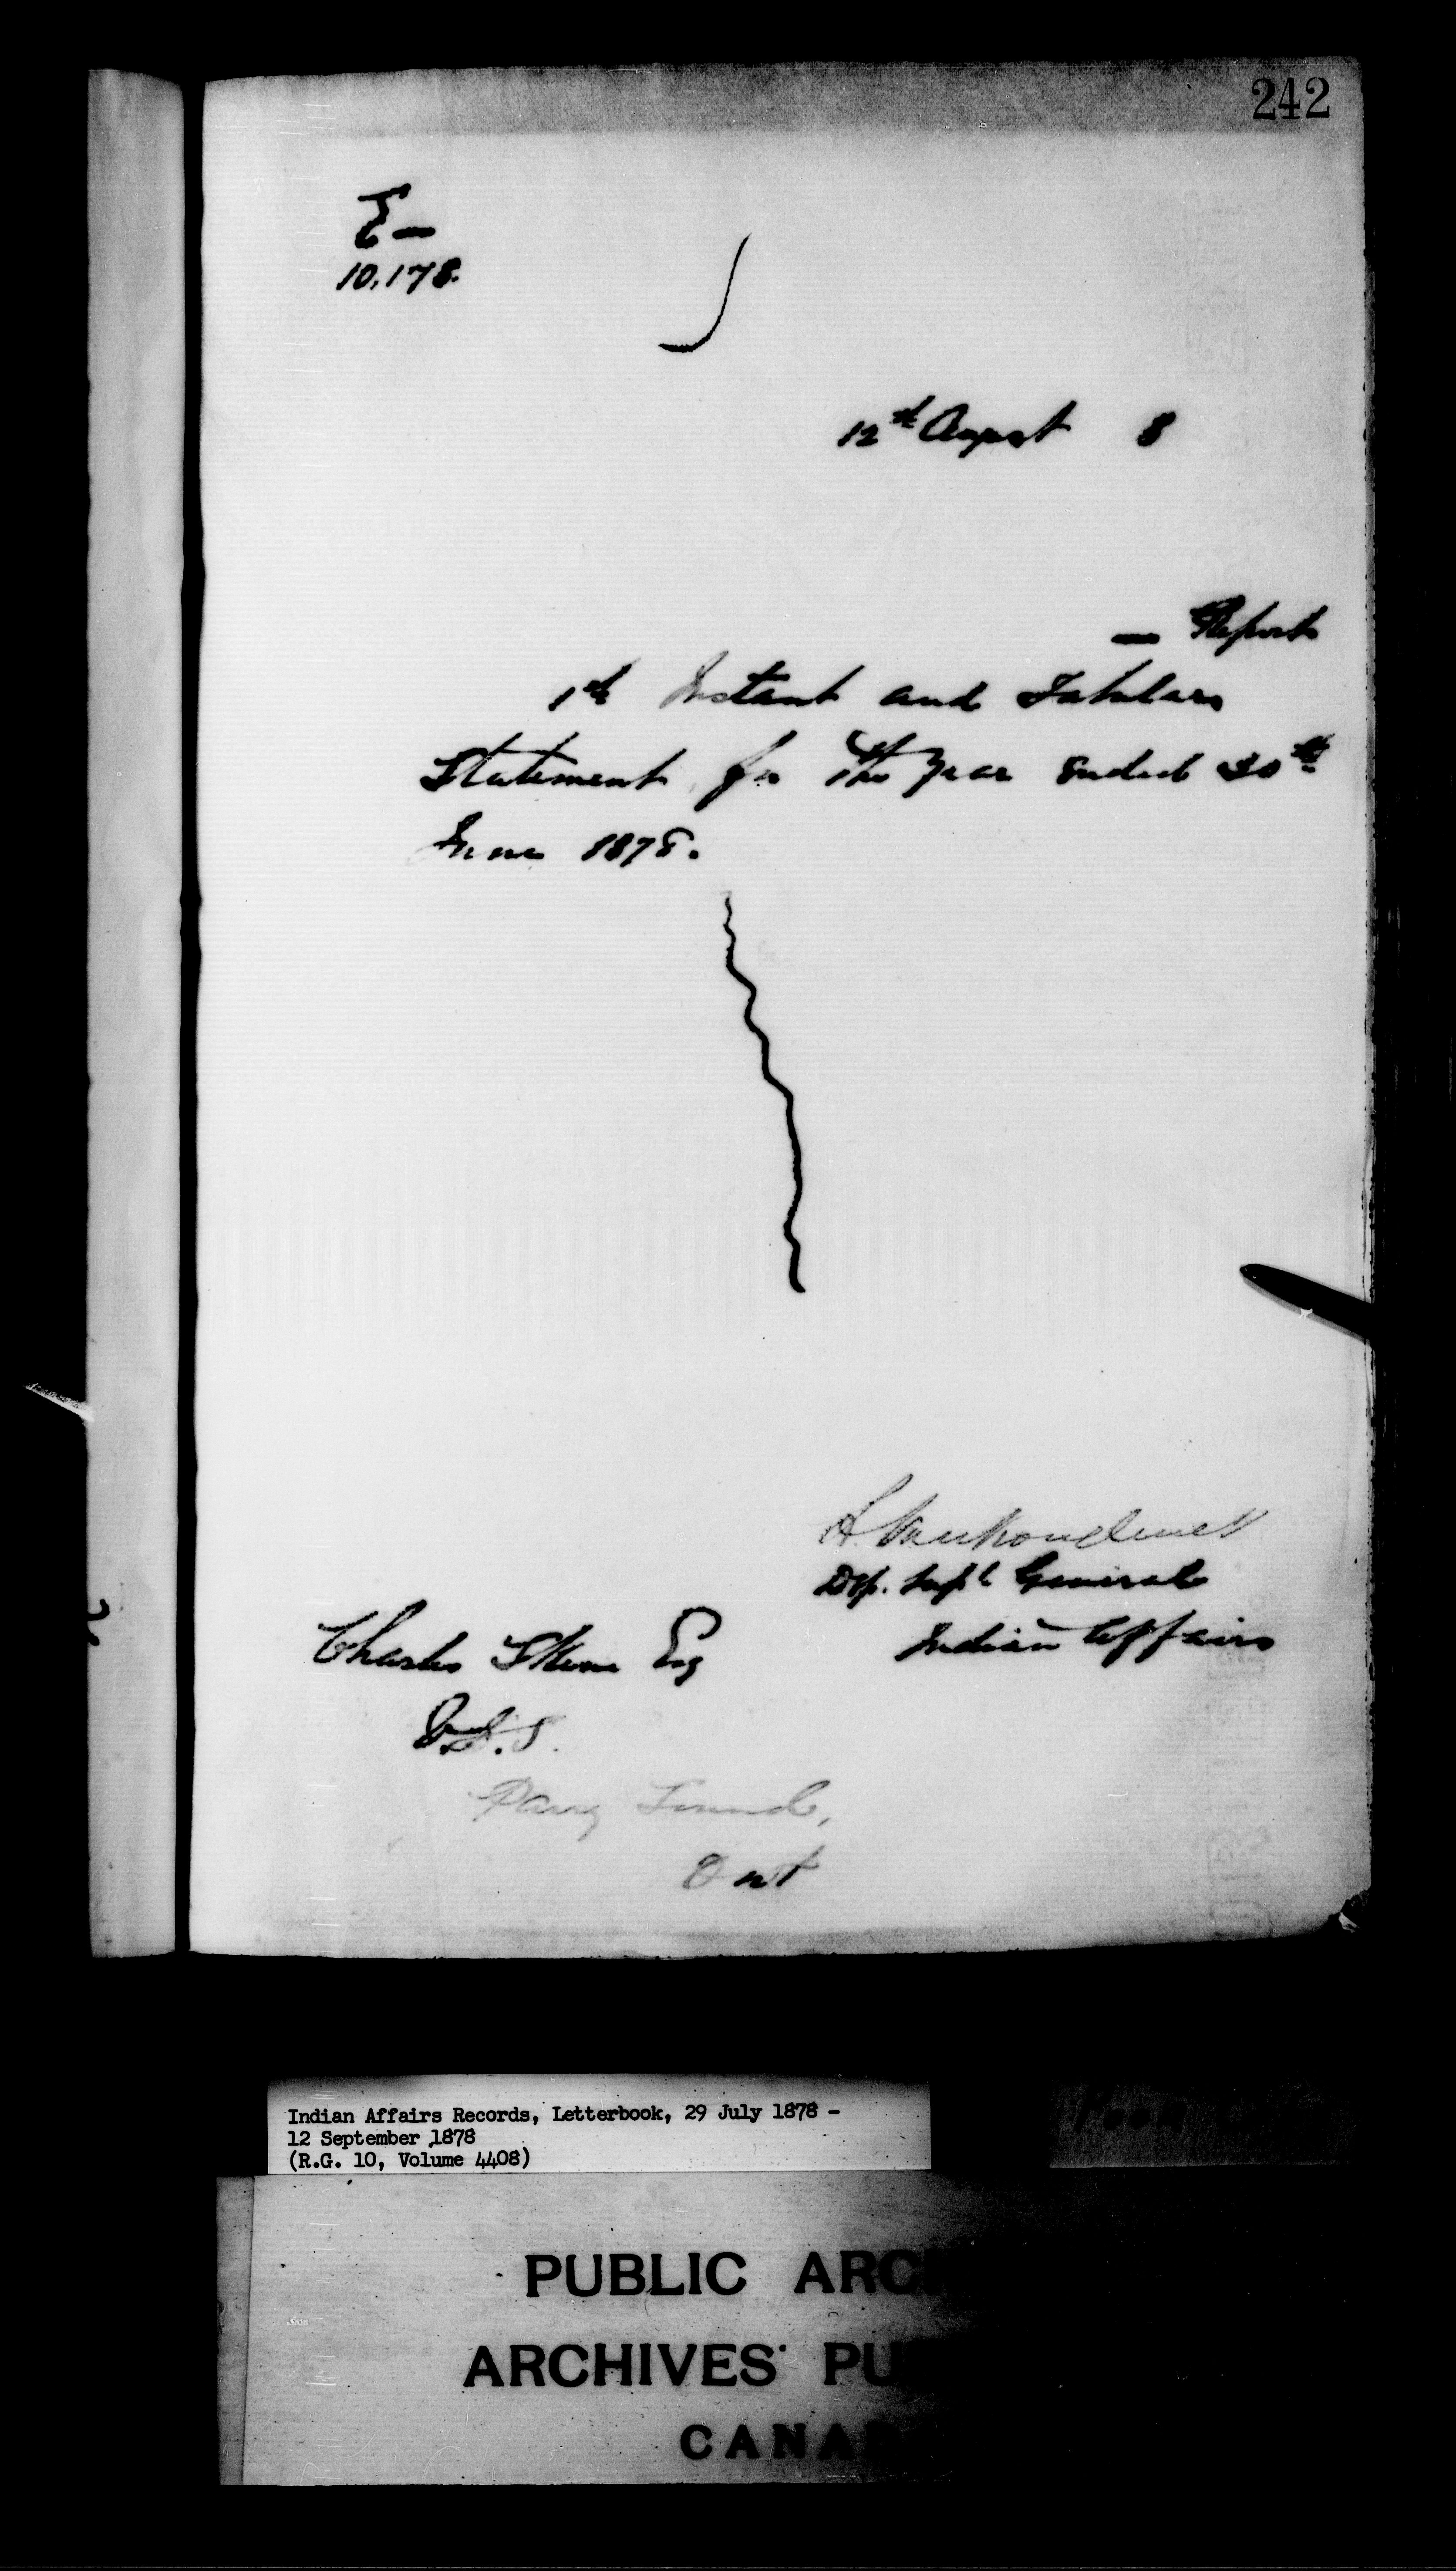 242
E—
10,178.
12th August 8
— Report
1st Instant and Tabular
Statement for the Year Ended 30th
June 1878.
L. Vankoughnet
Dep. Supt General
Indian Affairs
Charles Skene Esq
V.S.S.
Parry Sound,
Ont
Indian Affairs Records, Letterbook, 29 July 1878 -
12 September 1878
(R.G. 10, Volume 4408)
PUBLIC ARC
ARCHIVES PU
CANA